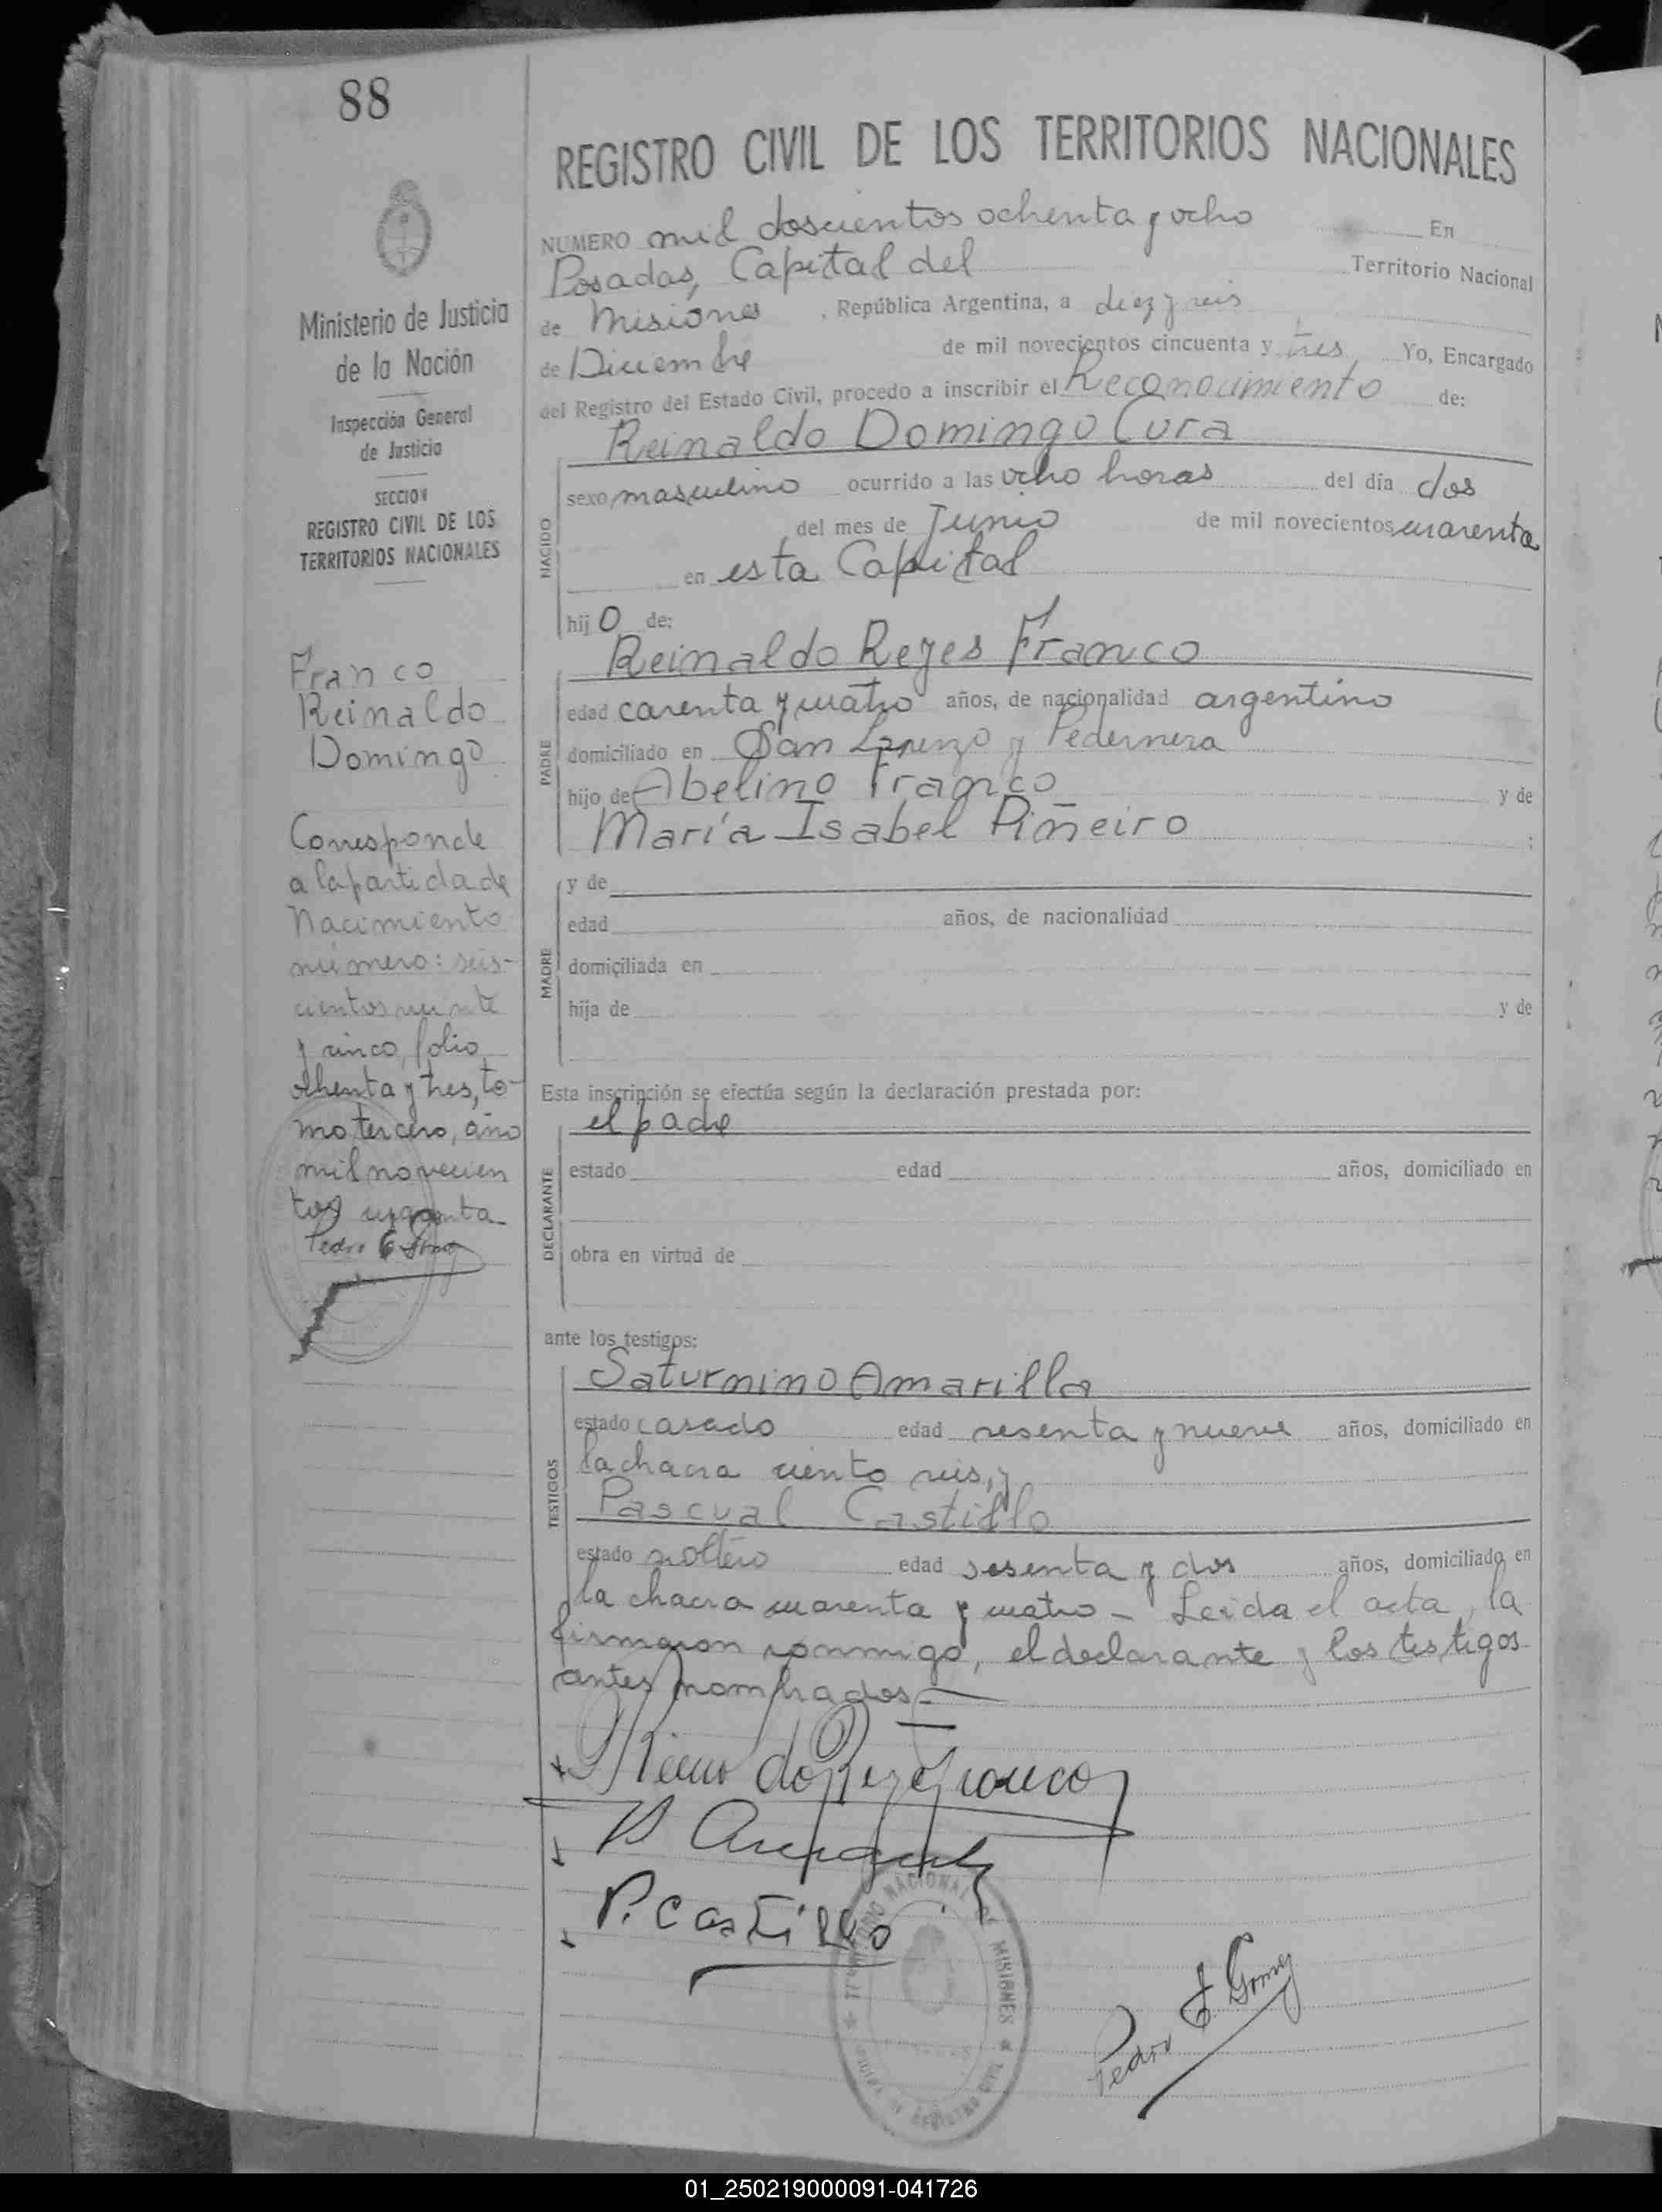 88
REGISTRO CIVIL DE LOS TERRITORIOS NACIONALES
Ministerio de Justicia
de la Nación
Inspección General
de Justicia
SECCION
REGISTRO CIVIL DE LOS
TERRITORIOS NACIONALES
Franco
Reinaldo
Domingo
Corresponde
a la partida de
Nacimiento
número: seis-
cientos veinte
y cinco, folio
ochenta y tres, to-
mo tercero, año
mil novecien
tos cuarenta
NUMERO mil doscientos ochenta y ocho En
Posadas, Capital del Territorio Nacional
de Misiones, República Argentina, a diez y seis
de Diciembre de mil novecientos cincuenta y tres Yo, Encargado
del Registro del Estado Civil, procedo a inscribir el Reconocimiento de:
Reinaldo Domingo Cura
NACIDO
sexo masculino ocurrido a las ocho horas del día dos
del mes de Junio de mil novecientos cuarenta
en esta Capital
hijo de:
Reinaldo Reyes Franco
PADRE
edad carenta y cuatro años, de nacionalidad argentino
domiciliado en San Lorenzo y Pedernera
hijo de Abelino Franco y de
María Isabel Piñeiro ;
MADRE
y de
edad años, de nacionalidad
domiciliada en
hija de y de
Esta inscripción se efectúa según la declaración prestada por:
el padre
DECLARANTE
estado edad años, domiciliado en
obra en virtud de
ante los testigos:
Saturnino Amarilla
TESTIGOS
estado casado edad sesenta y nueve años, domiciliado en
la chacra ciento seis, y
Pascual Castillo
estado soltero edad sesenta y dos años, domiciliado en
la chacra cuarenta y cuatro - Leída el acta, la
firmaron conmigo, el declarante y los testigos
antes nombrados -
P. Castillo
TERRITORIO NACIONAL DE MISIONES
Pedro E. Gomez
01_250219000091-041726